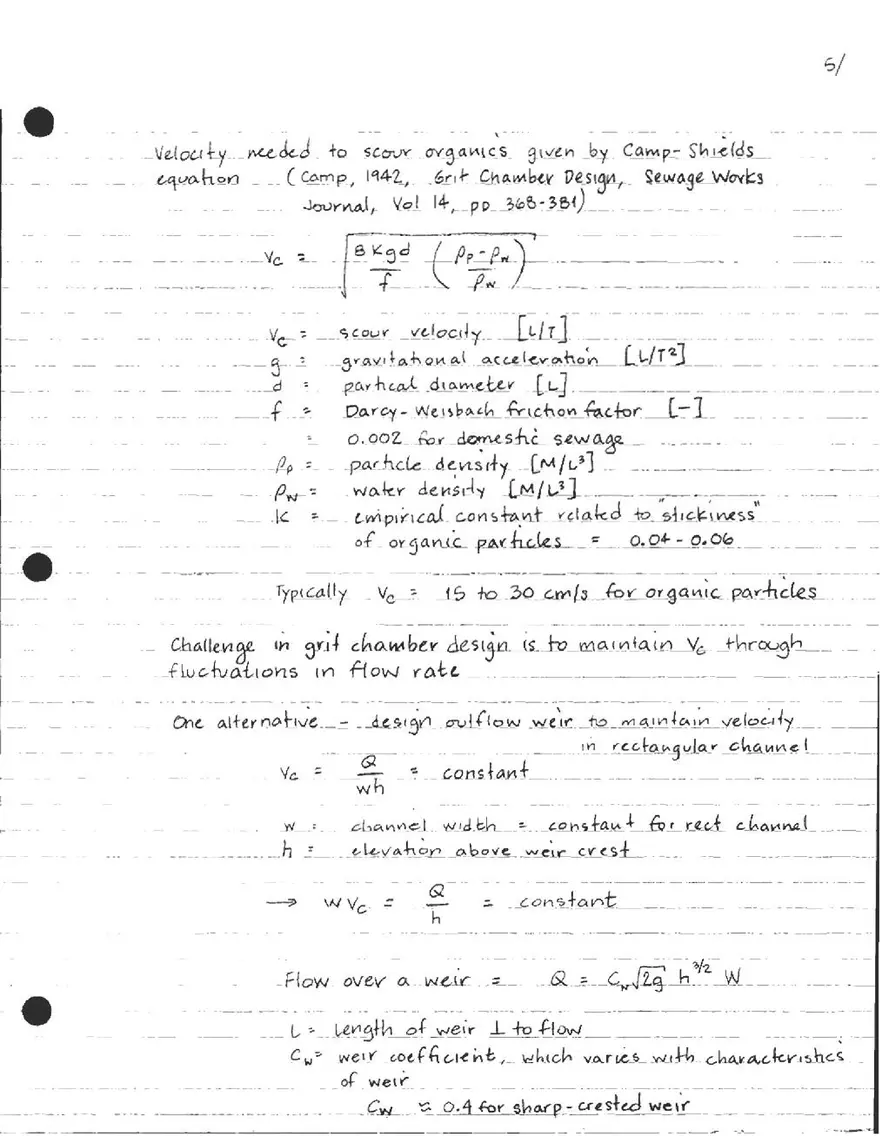 5/
Velocity needed to scour organics given by Camp-Shields
equation (Camp, 1942, Grit Chamber Design, Sewage Works
Journal, Vol 14, pp 368-381)
Vc = √(8Kgd/f ((ρp - ρw)/ρw))
Vc = scour velocity [L/T]
g = gravitational acceleration [L/T²]
d = partical diameter [L]
f = Darcy-Weisbach friction factor [-]
= 0.002 for domestic sewage
ρp = particle density [M/L³]
ρw = water density [M/L³]
K = empirical constant related to "stickiness"
of organic particles = 0.04 - 0.06
Typically Vc = 15 to 30 cm/s for organic particles
Challenge in grit chamber design is to maintain Vc through
fluctuations in flow rate
One alternative - design outflow weir to maintain velocity
in rectangular channel
Vc = Q/wh = constant
w = channel width = constant for rect channel
h = elevation above weir crest
→ WVc = Q/h = constant
Flow over a weir = Q = Cw√2g h^3/2 W
L = Length of weir ⊥ to flow
Cw = weir coefficient, which varies with characteristics
of weir
Cw ≈ 0.4 for sharp-crested weir